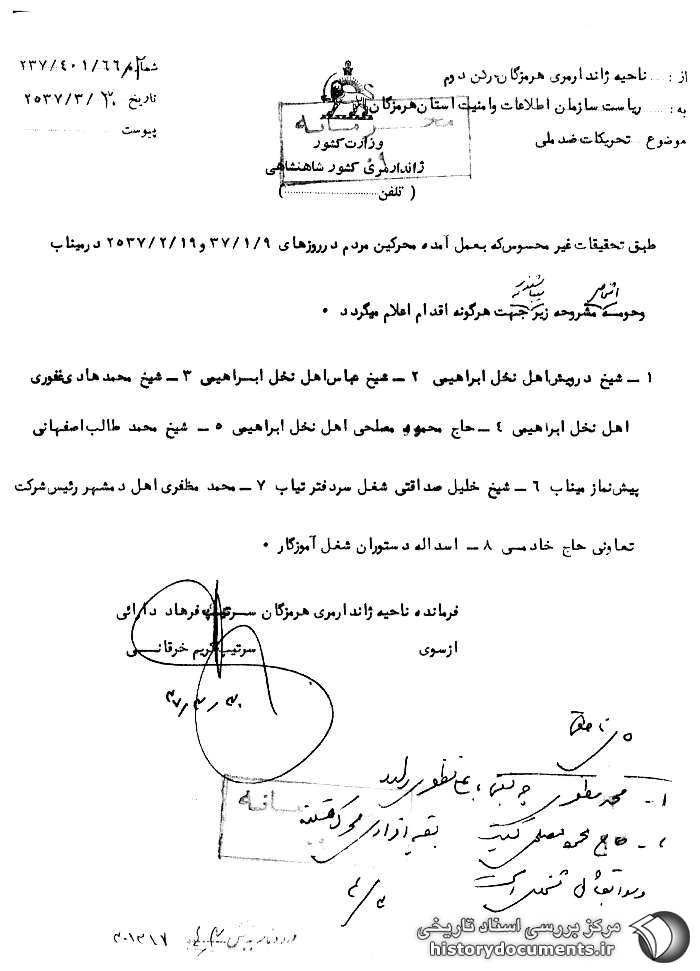 از : ..... ناحیه ژاندارمری هرمزگان-رکن دوم
به : ..... ریاست سازمان اطلاعات وامنیت استان هرمزگان
موضوع تحریکات ضد ملی
محرمانه
وزارت کشور
ژاندارمری کشور شاهنشاهی
( تلفن .......... )
شماره ۲۳۷/۴۰۱/۶۶
تاریخ ۲۵۳۷/۳/۳۰
پیوست
طبق تحقیقات غیر محسوس که بعمل آمده محرکین مردم در روزهای ۳۷/۱/۹ و ۲۵۳۷/۲/۱۹ در میناب
اشخاص میباشند
وحومه مشروحه زیر جهت هرگونه اقدام اعلام میگردد ۰
۱ ــ شیخ درویش اهل نخل ابراهیمی ۲ ــ شیخ عباس اهل نخل ابراهیمی ۳ ــ شیخ محمد هادی غفوری
اهل نخل ابراهیمی ۴ ــ حاج محمود مصلحی اهل نخل ابراهیمی ۵ ــ شیخ محمد طالب اصفهانی
پیش نماز میناب ۶ ــ شیخ خلیل صداقتی شغل سردفتر تیاب ۷ ــ محمد مظفری اهل دمشهر رئیس شرکت
تعاونی حاج خادمی ۸ ــ اسداله دستوران شغل آموزگار ۰
فرمانده ناحیه ژاندارمری هرمزگان سرتیپ فرهاد دارائی
ازسوی سرتیپ کریم خرقانی
۳۷/۳/۳۰
۱ - محمد
۲ - حاج محمود مصلحی کیست بقیه افراد محرک هستند
۳۰۱۳۱۷
مرکز بررسی اسناد تاریخی
historydocuments.ir